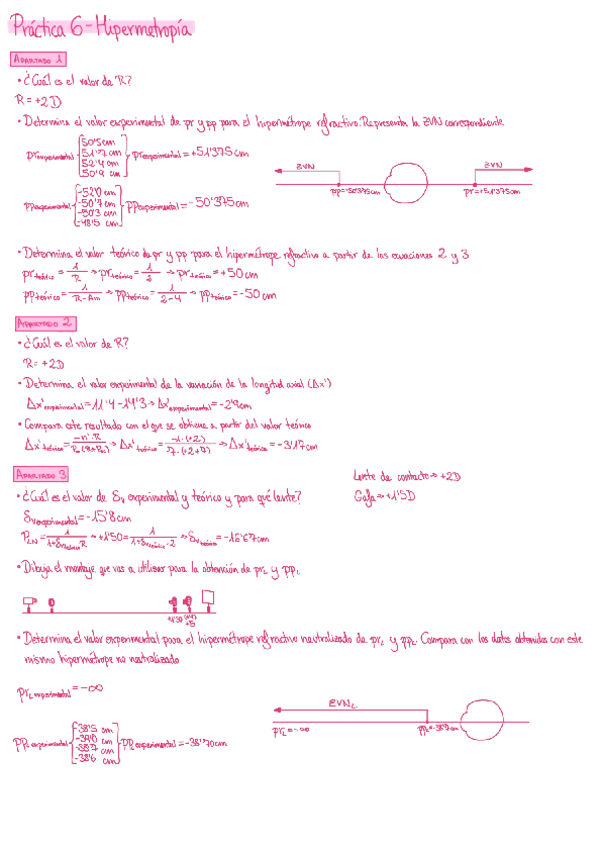 Práctica 6 - Hipermetropía
APARTADO 1
• ¿Cuál es el valor de R?
R = +2D
• Determina el valor experimental de pr y pp para el hipermétrope refractivo. Representa la ZVN correspondiente.
pr experimental { 50'5 cm
51'7 cm
52'4 cm
50'9 cm } pr experimental = +51'375 cm
ZVN ZVN
pp=-50'375cm pr=+51'375cm
pp experimental { -52'0 cm
-50'7 cm
-50'3 cm
-48'5 cm } pp experimental = -50'375 cm
• Determina el valor teórico de pr y pp para el hipermétrope refractivo a partir de las ecuaciones 2 y 3
pr teórico = 1/R → pr teórico = 1/2 → pr teórico = +50 cm
pp teórico = 1/R-Am → pp teórico = 1/2-4 → pp teórico = -50 cm
APARTADO 2
• ¿Cuál es el valor de R?
R = +2D
• Determina el valor experimental de la variación de la longitud axial (Δx')
Δx' experimental = 11'4 - 14'3 → Δx' experimental = -2'9 cm
• Compara este resultado con el que se obtiene a partir del valor teórico
Δx' teórico = → Δx' teórico = -1·(+2)/7·(2+7) → Δx' teórico = -3'17 cm
APARTADO 3
Lente de contacto → +2D
• ¿Cuál es el valor de δv experimental y teórico y para qué lente?
Gafa → +1'5D
δv experimental = -15'8 cm
→ +1'50 = → δv teórico = -16'67 cm
• Dibuja el montaje que vas a utilizar para la obtención de prL y ppL
• Determina el valor experimental para el hipermétrope refractivo neutralizado de prL y ppL. Compara con los datos obtenidos con este
mismo hipermétrope no neutralizado
prL experimental = -∞
ZVNL
prL = -∞ ppL = -38'7cm
ppL experimental { -38'5 cm
-39'0 cm
-38'7 cm
-38'6 cm } ppL experimental = -38'70 cm